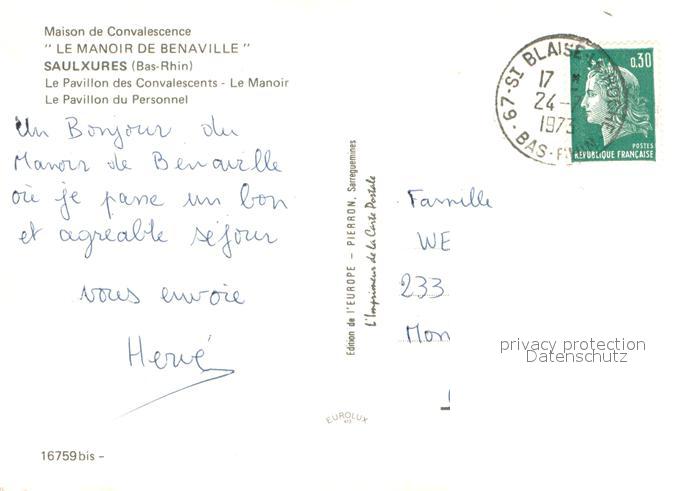 Maison de Convalescence
" LE MANOIR DE BENAVILLE "
SAULXURES (Bas-Rhin)
Le Pavillon des Convalescents - Le Manoir
Le Pavillon du Personnel
Un Bonjour du
Manoir de Benaville
où je passe un bon
et agréable séjour
vous envoie
Hervé
16759 bis -
Edition de l'EUROPE - PIERRON, Sarreguemines
L'Imprimeur de la Carte Postale
EUROLUX
67 - ST BLAISE
17
24 -
1973
BAS-RHIN
0,30
POSTES
RÉPUBLIQUE FRANÇAISE
Famille
WE
233
Mon
privacy protection
Datenschutz